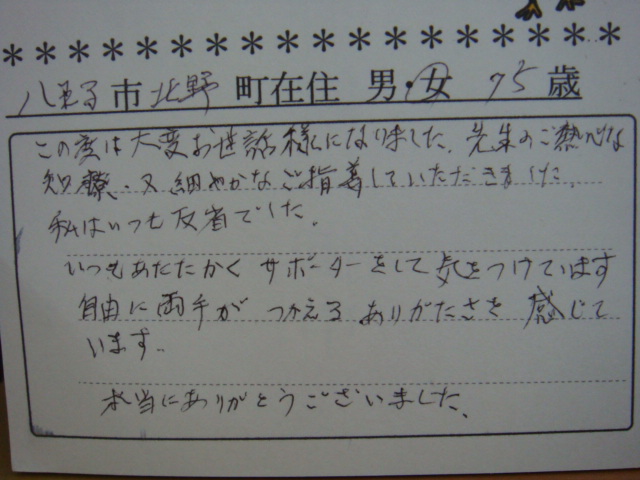 * * * * * * * * * * * * * * * * * *
八王子市北野町在住 男・女 75歳
この度は大変お世話様になりました。先生のご熱心な
知療、又細やかなご指導していただきました。
私はいつも反省でした。
いつもあたたかく サポーターをして気をつけています
自由に両手が つかえる ありがたさを 感じて
います。
本当にありがとうございました。